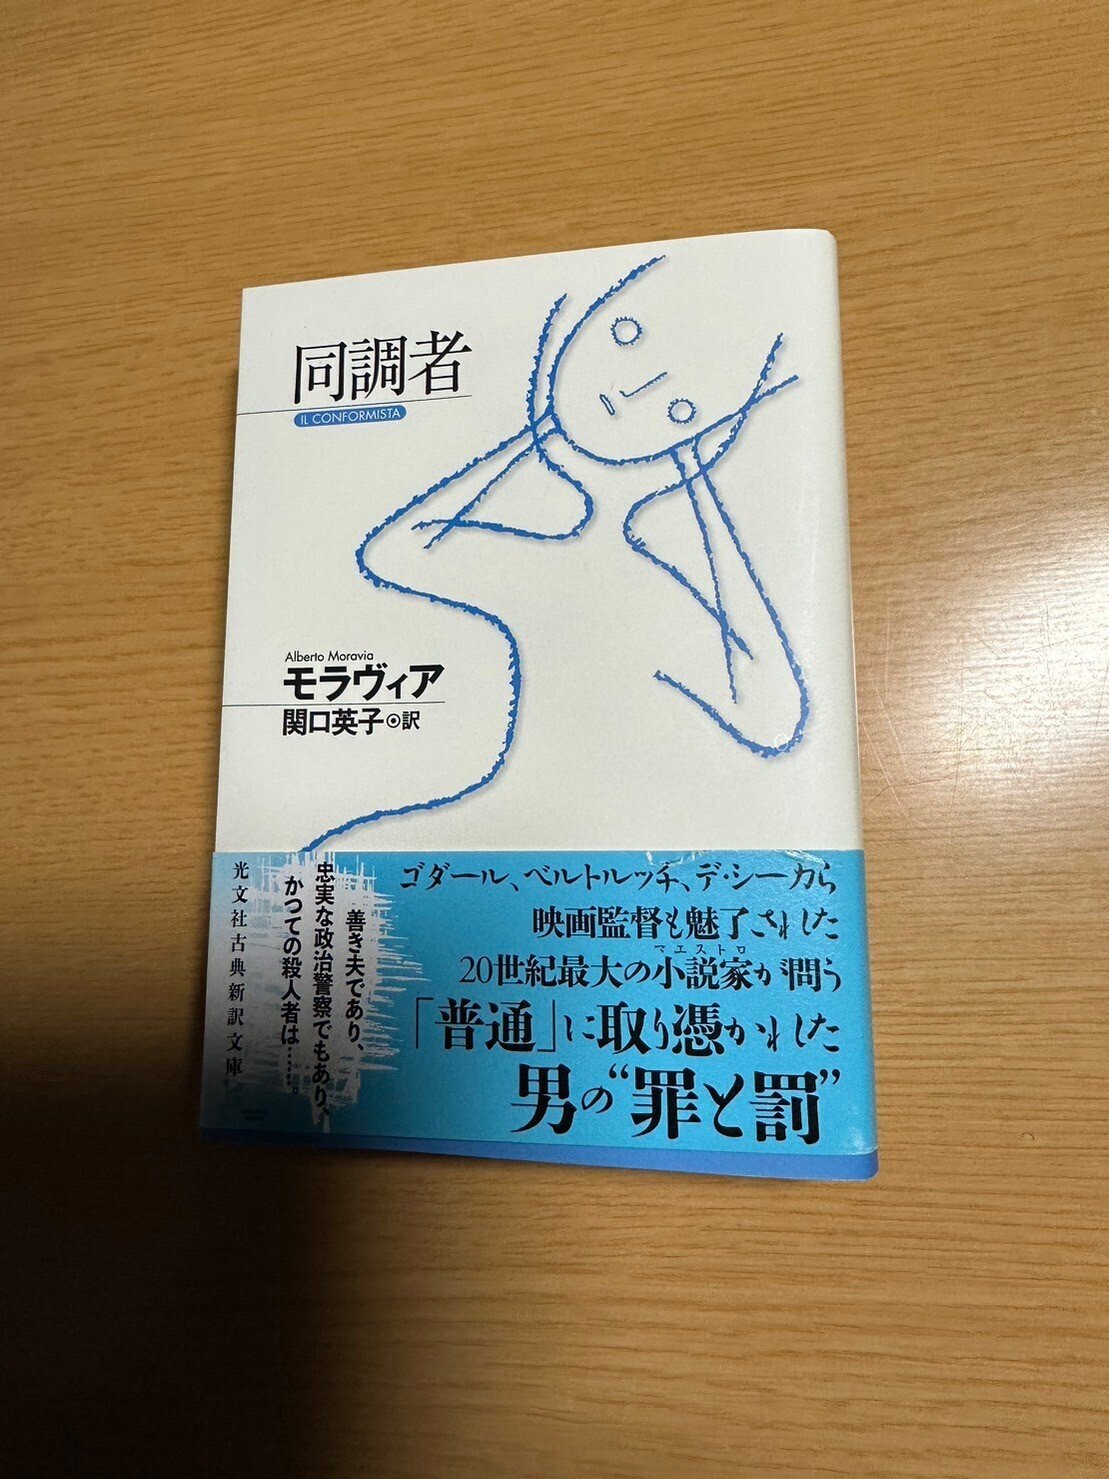 同調者
IL CONFORMISTA
Alberto Moravia
モラヴィア
関口英子◉訳
ゴダール、ベルトルッチ、デ・シーカら
映画監督も魅了された
マエストロ
20世紀最大の小説家が問う
「普通」に取り憑かれた
男の“罪と罰”
善き夫であり、
忠実な政治警察でもあり、
かつての殺人者は……。
光文社古典新訳文庫